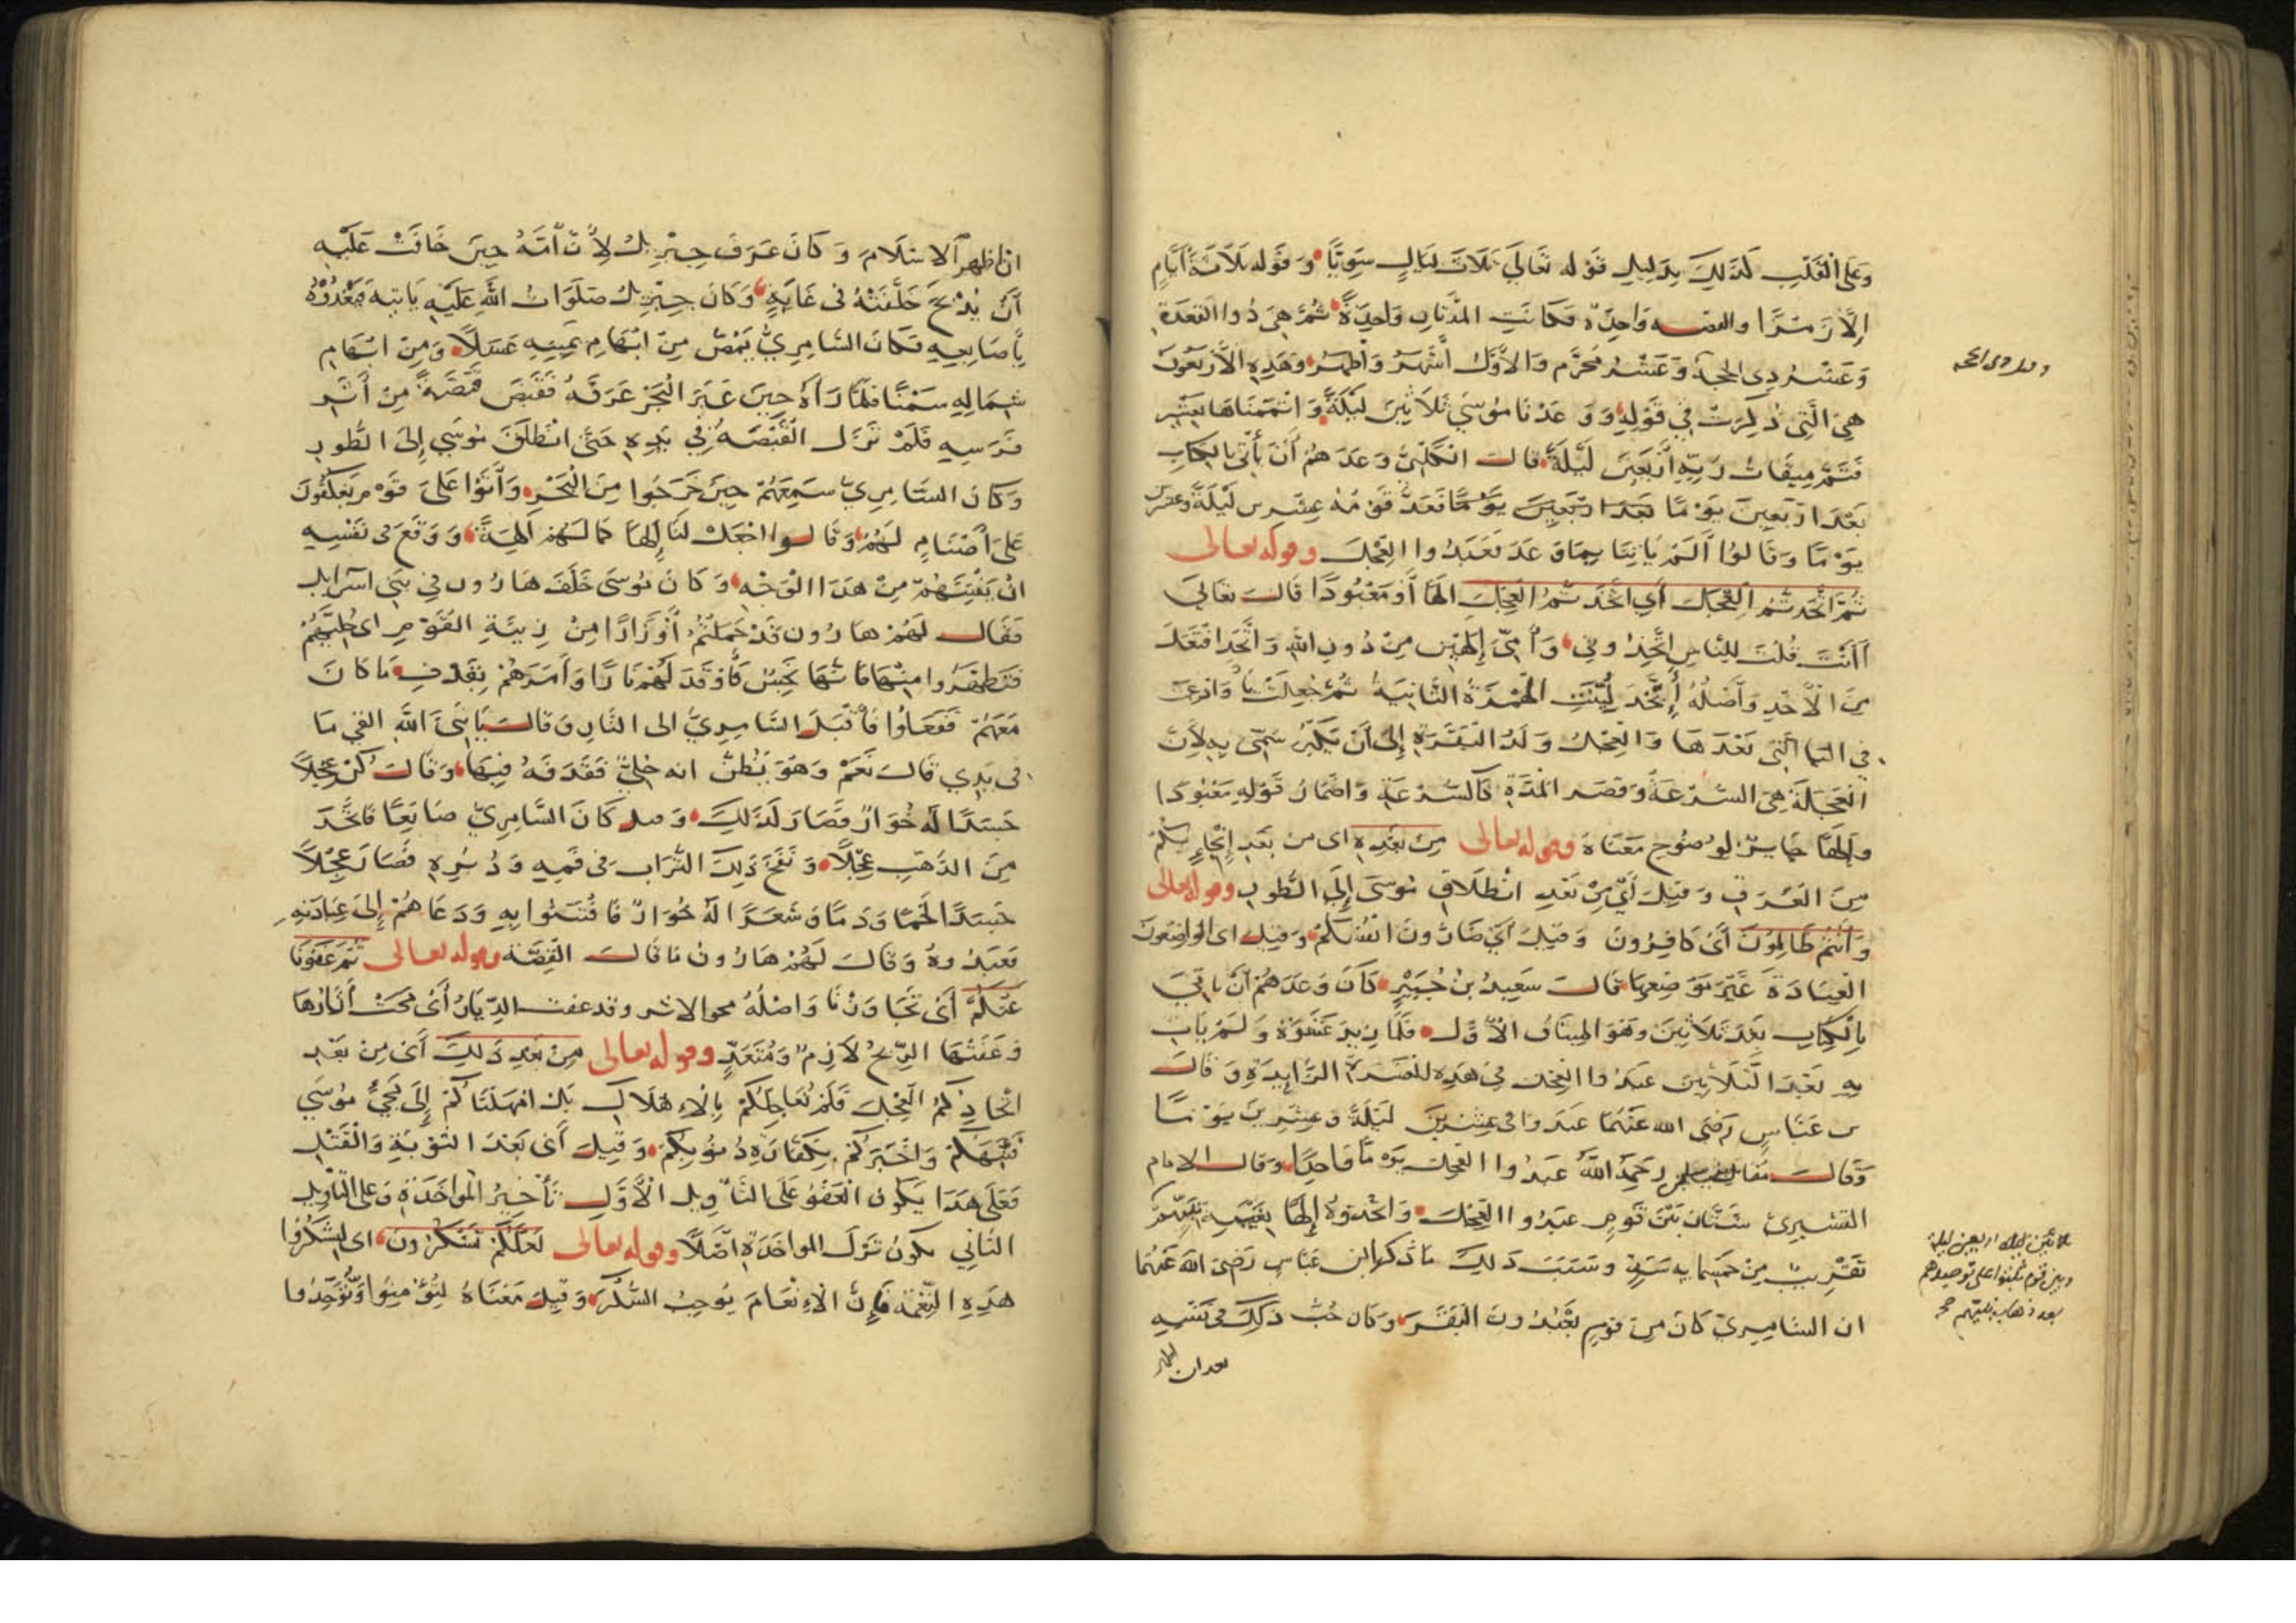 وَعَلَى الْقَلْبِ كَذَلِكَ بِدَلِيلِ قَوْله تَعَالَى ثَلَاثَ لَيَالٍ سَوِيًّا وَقَوْله ثَلَاثَةَ أَيَّامٍ
إِلَّا رَمْزًا والقصه وَاحِدَة فَكَانَتِ المُدَّتَانِ وَاحِدَةً ثُمَّ هِيَ ذُوا القَعْدَة
وَعَشْر ذِي الحجة وَعَشْر مُحَرَّم وَالأَوَّل أَشْهَرُ وَأَظْهَرُ وَهَذِهِ الأَرْبَعُونَ
هِيَ الَّتِي ذُكِرَتْ فِي قَوْلِهِ وَوَعَدْنَا مُوسَى ثَلَاثِينَ لَيْلَةً وَأَتْمَمْنَاهَا بِعَشْرٍ
فَتَمَّ مِيقَاتُ رَبِّهِ أَرْبَعِينَ لَيْلَةً قال الْكَلْبِيُّ وَعَدَهُمْ أَنْ يَأْتِيَ بِالكِتَابِ
بَعْدَ أَرْبَعِينَ يَوْمًا فَعَدَّ قَوْمُهُ عِشْرِينَ لَيْلَةً وعشرين
يَوْمًا وَقَالُوا أَلَمْ يَأْتِنَا فَعَبَدُوا الْعِجْلَ وقوله تعالى
ثُمَّ اتَّخَذْتُمُ الْعِجْلَ أَيِ اتَّخَذْتُمُ الْعِجْلَ إِلَهًا أَوْ مَعْبُودًا قَالَ تَعَالَى
أَأَنْتَ قُلْتَ لِلنَّاسِ اتَّخِذُونِي وَأُمِّيَ إِلَهَيْنِ مِنْ دُونِ اللَّهِ وَاتَّخَذَ افْتَعَلَ
مِنَ الأَخْذِ وَأَصْلُهُ إِتَّخَذَ لُيِّنَتِ الْهَمْزَةُ الثَّانِيَةُ ثُمَّ جُعِلَتْ تاءً وَادْغمت
في التا الَّتِي بَعْدَهَا وَالْعِجْلُ وَلَدُ الْبَقَرَةِ إِلَى أَنْ يَكْبُرَ سُمِّيَ بِهِ لِأَنَّ
الْعَجَلَةَ هِيَ السُّرْعَةُ وَقِصَرِ الْمُدَّةِ كَالسُّرْعَةِ وَإِضْمَارُ قَوْلِهِ مَعْبُودًا
وَإِلَهًا جَايِزٌ لِوُضُوحِ مَعْنَاهُ وقوله تعالى مِنْ بَعْدِهِ اى من بَعْدِ إِنْجَاءِكُمْ
مِنَ الْغَرَقِ وَقِيلَ أَيْ مِنْ بَعْدِ انْطِلَاقِ مُوسَى إِلَى الطُّورِ وقوله تعالى
وَأَنْتُمْ ظَالِمُونَ أَيْ كَافِرُونَ وَقِيلَ أَيْ ضَارُّونَ انْفُسَكُمْ وَقِيلَ اى الواضِعُونَ
الْعِبَادَةَ غَيْرَ مَوْضِعِهَا قَالَ سَعِيدُ بْنُ جُبَيْرٍ كَانَ وَعَدَهُمْ أَنْ يَأْتِيَ
بِالْكِتَابِ بَعْدَ ثَلَاثِينَ وَهُوَ المِيثَاقُ الأَوَّلُ فَلَمَّا زِيدَ عَشْرَةٌ وَلَمْ يَأْتِ
بِهِ بَعْدَ الثَّلَاثِينَ عَبَدُوا الْعِجْلَ فِي هَذِهِ العَشَرَةِ الزَّايِدَةِ وَقَالَ
بن عَبَّاسٍ رَضِيَ الله عَنْهُمَا عَبَدُوا فى عِشْرِينَ لَيْلَةً وَعِشْرِينَ يَوْمًا
وَقَالَ مُقَاتِلُ رَحِمَهُ اللَّهُ عَبَدُوا الْعِجْلَ يَوْمًا وَاحِدًا وَقَالَ الامام
القشيرى شَتَّانَ بَيْنَ قَوْمٍ عَبَدُوا الْعِجْلَ وَاتَّخَذُوهُ إِلَهًا بِغَيْبَةِ نَبِيِّهِمْ
تَقْرِيبٌ مِنْ خَمْسِمايه سَنَةٍ وسَبَبُ ذَلِكَ مَا ذَكَرَ ابن عَبَّاسٍ رَضِيَ اللَّه عَنْهُمَا
ان السَّامِرِيَّ كَانَ مِنْ قَوْمٍ يَعْبُدُونَ الْبَقَرَ وَكَان حُبُّ ذَلِكَ فى نَفْسِهِ
بعد ان اظهر
ثلاثين ليلة اربعين ليلة
وبين قوم ثبتوا على توحيدهم
بعد ذهاب نبيّهم صح
ان اظهر الاسْلَامَ وَكَانَ عَرَفَ جِبْرِيلُ لِأَنَّ أُمَّهُ حِينَ خَافَتْ عَلَيْهِ
أَنْ يُذْبَحَ خَلَّفَتْهُ في غَارٍ وَكَانَ جِبْرِيلُ صَلَوَاتُ اللَّهِ عَلَيْهِ يَأْتِيهِ فَيَغْذُوهُ
بِأَصَابِعِهِ فَكَانَ السَّامِرِيُّ يَمُصُّ مِنْ ابْهَامِ يَمِينِهِ عَسَلًا وَمِنْ ابْهَامِ
شِمَالِهِ سَمْنًا فَلَمَّا رَآهُ حِينَ عَبَرَ الْبَحْرَ عَرَفَهُ فَقَبَضَ قَبْضَةً مِنْ أَثَرِ
فَرَسِهِ فَلَمْ تَزَل الْقَبْضَةُ فِي يَدِهِ حَتَّى انْطَلَقَ مُوسَى إِلَى الطُّورِ
وَكَانَ السَّامِرِيُّ سَمِعَهُمْ حِينَ خَرَجُوا مِنَ الْبَحْرِ وَأَتَوْا عَلَى قَوْمٍ يَعْكُفُونَ
عَلَى أَصْنَامٍ لَهُمْ وَقَالُوا اجْعَلْ لَنَا إِلَهًا كَمَا لَهُمْ آلِهَةٌ وَوَقَعَ فى نَفْسِهِ
انْ يَفْتِنَهُمْ مِنْ هَذَا الْوَجْهِ وَكَانَ مُوسَى خَلَّفَ هَارُونَ فِي بَنِي اسْرَايِل
فَقَالَ لَهُمْ هَارُونُ قَدْ حُمِّلْتُمْ أَوْزَارًا مِنْ زِينَةِ الْقَوْمِ اى حُلِيَّهُمْ
فَتَطَهَّرُوا مِنْهَا فَإِنَّهَا نَجَسٌ فَأَوْقَدَ لَهُمْ نَارًا وَأَمَرَهُمْ بِقَذْفِ مَا كَانَ
مَعَهُمْ فَفَعَلُوا فَأَقْبَلَ السَّامِرِيُّ الى النَّارِ وَقَالَ يَا نَبِيَّ اللَّهِ القى مَا
فى يَدِي قَالَ نَعَمْ وَهُوَ يَظُنُّ انه حُلِيٌّ فَقَذَفَهُ فِيهَا وَقَالَ كُنْ عِجْلًا
جَسَدًا لَهُ خُوَارٌ فَصَارَ كَذَلِكَ وَقيل كَانَ السَّامِرِيُّ صَايِغًا فَاتَّخَذَ
مِنَ الذَّهَبِ عِجْلًا وَنَفَخَ ذَلِكَ التُّرَابَ فى فَمِهِ وَدُبُرِهِ فَصَارَ عِجْلًا
جَسَدًا لَحْمًا وَدَمًا وَشَعَرًا لَهُ خُوَارٌ فَافْتَتَنُوا بِهِ وَدَعَاهُمْ إِلَى عِبَادَتِهِ
فَعَبَدُوهُ وَقَالَ لَهُمْ هَارُونُ مَا قَالَ القِصَّة وقوله تعالى ثُمَّ عَفَوْنَا
عَنْكُمْ أَيْ تَجَاوَزْنَا وَاصْلُهُ محو الاثر وقد عفت الدِّيَارُ أَيْ مُحَتْ أَثَارُهَا
وَعَفَتْهَا الرِّيحُ لَازِمٌ وَمُتَعَدٍّ وقوله تعالى مِنْ بَعْدِ ذَلِكَ أَيْ مِنْ بَعْدِ
اتِّخَاذِكُمُ الْعِجْلَ فَلَمْ نُعَاجِلْكُمْ بِالإِهْلَاكِ بَلْ امْهَلْنَاكُمْ إِلَى مَجِيءِ مُوسَى
فَنَبَّهَكُمْ وَاخْبَرَكُمْ بِكَفَّارَةِ ذُنُوبِكُمْ وَقِيلَ أَيْ بَعْدَ التَّوْبَةِ وَالْقَتْلِ
فَعَلَى هَذَا يَكُونُ الْعَفْوُ عَلَى التَّأْوِيلِ الْأَوَّلِ تَأْخِيرُ الْمُوَاخَذَةِ وَعلى التَّأْوِيلِ
الثَّانِي يكُونُ تَرْكَ المواخَذَةِ أَصْلًا وقوله تعالى لَعَلَّكُمْ تَشْكُرُونَ اى لِتَشْكُرُوا
هَذِهِ النِّعْمَةَ فَإِنَّ الْإِنْعَامَ يُوجِبُ الشُّكْرَ وَقِيلَ مَعْنَاهُ لِتُؤْمِنُوا وَتُوَحِّدُوا